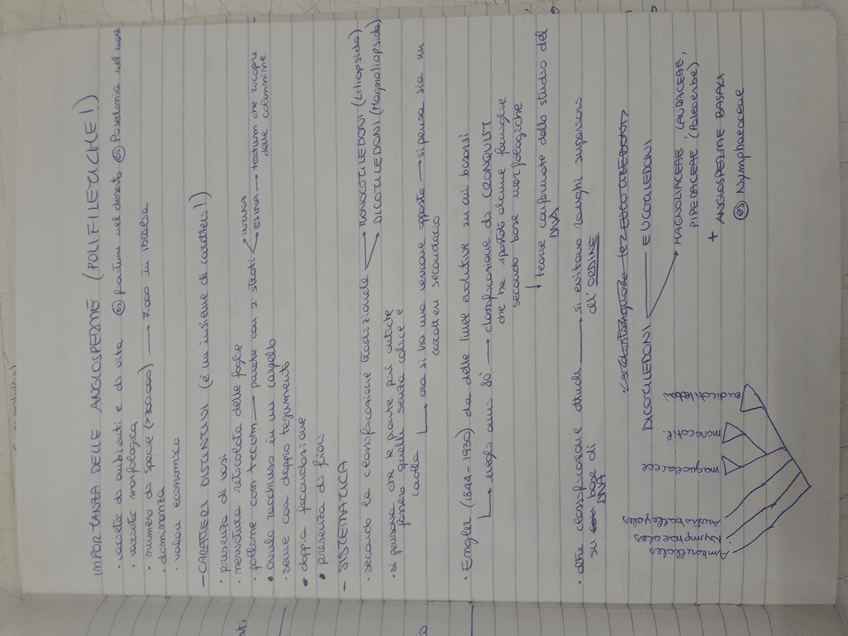 IMPORTANZA DELLE ANGIOSPERME (POLIFILETICHE!)
· varietà di ambienti e di vita es piantine nel deserto es Posidonia nel mare
· varietà morfologica
· numero di specie (>300.000) → 7.000 in Italia
· dominanza
· valore economico
- CARATTERI DISTINTIVI (è un insieme di caratteri!)
· presenza di vasi
· nervatura reticolata delle foglie
· polline con → parete con 2 strati intina
esina → tectum che ricopre
delle columelline
• ovulo racchiuso in un carpello
· seme con doppio tegumento
• doppia fecondazione
• presenza di fiori
- SISTEMATICA
· secondo la classificazione tradizionale → MONOCOTILEDONI (Liliopsida)
DICOTILEDONI (Magnoliopsida)
· si pensava che le piante più antiche
fossero quelle senza calice e
corolla → ora si ha una versione opposta → si pensa sia un
carattere secondario
· Engler (1844-1930) dà delle linee evolutive su cui basarsi
→ negli anni 80' → classificazione di CRONQUIST
che ha spostato alcune famiglie
secondo base morfologiche
↓ teorie confermate dallo studio del
DNA
· altre classificazioni attuali → si evitano ranghi superiori
su base di all'ORDINE
DNA
DICOTILEDONI — EUCOTILEDONI
MAGNOLIACEAE, LAURACEAE,
PIPERACEAE (Paleoerbe)
+ ANGIOSPERME BASALI
es Nymphaeaceae
Amborellales
Nympheales
Austrobaileyales
magnoliacee
monocotile.
eudicotiledoni